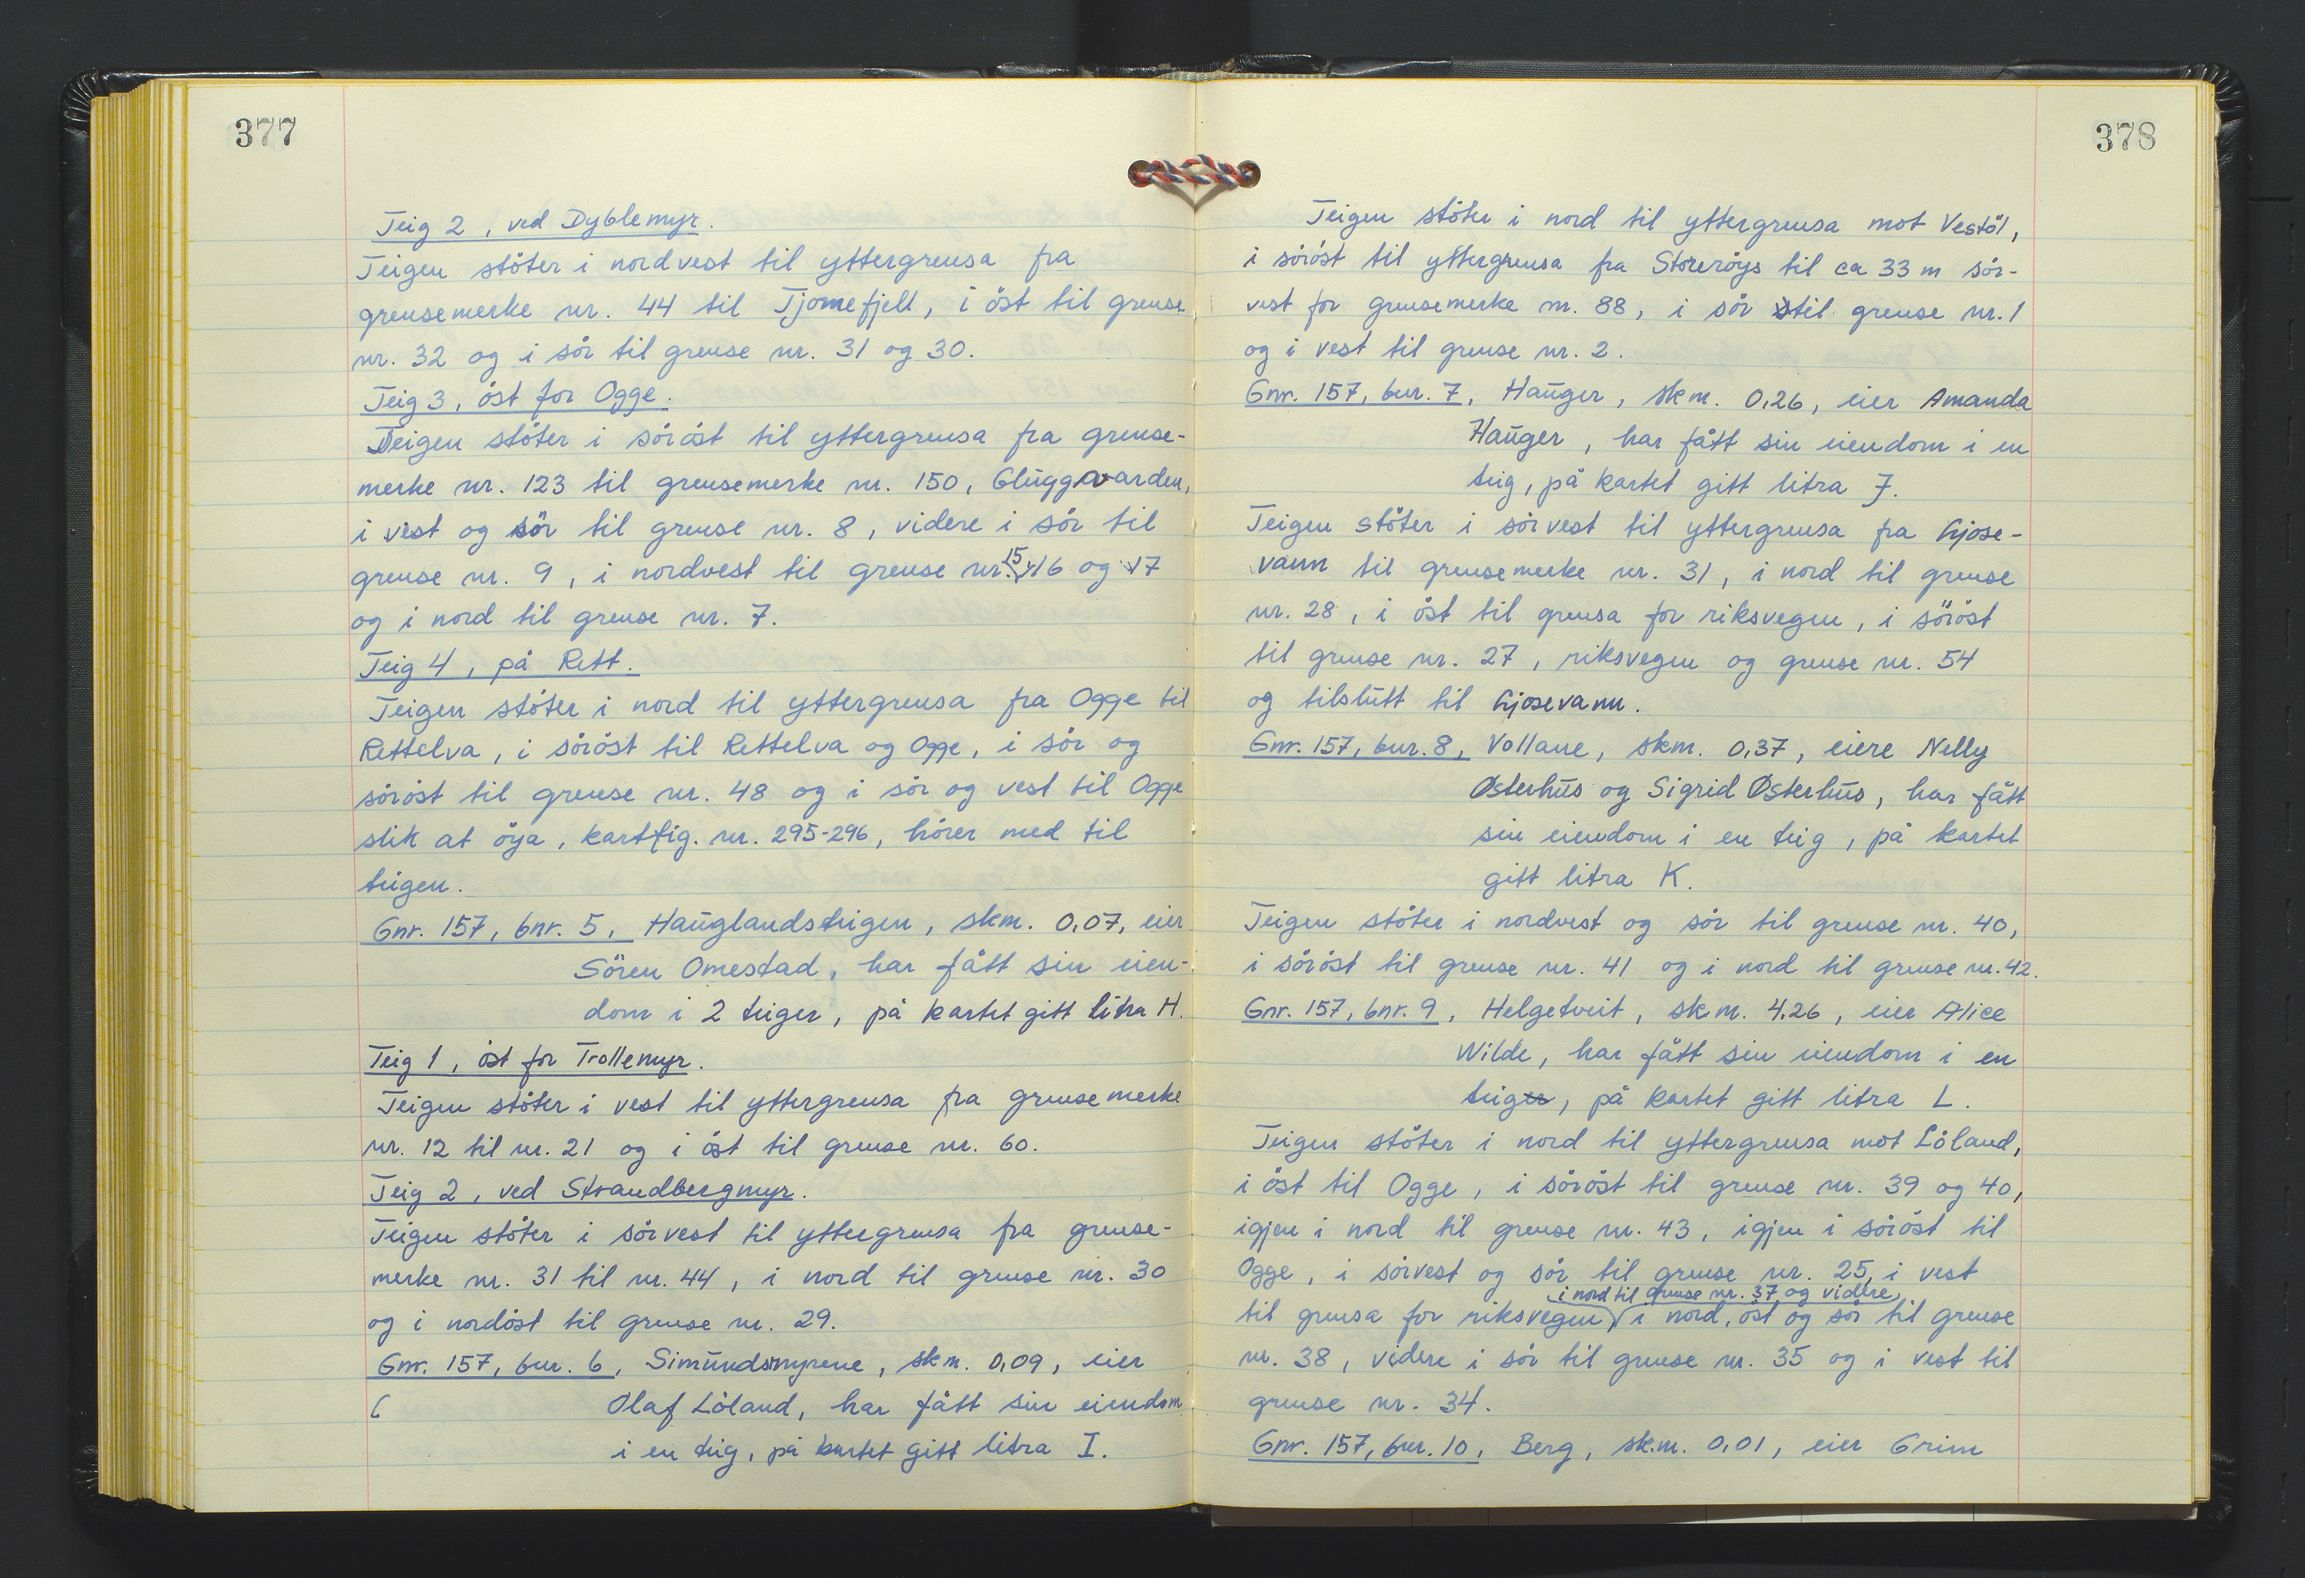 377
Teig 2, ved Dyblemyr.
Teigen stöter i nordvest til yttergrensa fra
grensemerke nr. 44 til Tjomefjell, i öst til grense
nr. 32 og i sör til grense nr. 31 og 30.
Teig 3, öst for Ogge.
Teigen stöter i söröst til yttergrensa fra grense-
merke nr. 123 til grensemerke nr. 150, Gluggvarden,
i vest og sör til grense nr. 8, videre i sör til
grense nr. 9, i nordvest til grense nr. 15, 16 og 17
og i nord til grense nr. 7.
Teig 4, på Rett.
Teigen stöter i nord til yttergrensa fra Ogge til
Rettelva, i söröst til Rettelva og Ogge, i sör og
söröst til grense nr. 48 og i sör og vest til Ogge
slik at öya, kartfig. nr. 295-296, hörer med til
teigen.
Gnr. 157, bnr. 5, Hauglandsteigen, skm. 0,07, eier
Sören Omestad, har fått sin eien-
dom i 2 teiger, på kartet gitt litra H.
Teig 1, öst for Trollemyr.
Teigen stöter i vest til yttergrensa fra grensemerke
nr. 12 til nr. 21 og i öst til grense nr. 60.
Teig 2, ved Strandbergmyr.
Teigen stöter i sörvest til yttergrensa fra grense-
merke nr. 31 til nr. 44, i nord til grense nr. 30
og i nordöst til grense nr. 29.
Gnr. 157, bnr. 6, Simundsmyrene, skm. 0,09, eier
Olaf Löland, har fått sin eiendom
i en teig, på kartet gitt litra I.
378
Teigen stöter i nord til yttergrensa mot Vestöl,
i söröst til yttergrensa fra Storeröys til ca 33 m sör-
vest for grensemerke nr. 88, i sör til grense nr. 1
og i vest til grense nr. 2.
Gnr. 157, bnr. 7, Hauger, skm. 0,26, eier Amanda
Hauger, har fått sin eiendom i en
teig, på kartet gitt litra J.
Teigen stöter i sörvest til yttergrensa fra Gjose-
vann til grensemerke nr. 31, i nord til grense
nr. 28, i öst til grensa for riksvegen, i söröst
til grense nr. 27, riksvegen og grense nr. 54
og tilslutt til Gjosevann.
Gnr. 157, bnr. 8, Vollane, skm. 0,37, eiere Nelly
Østerhus og Sigrid Østerhus, har fått
sin eiendom i en teig, på kartet
gitt litra K.
Teigen stöter i nordvest og sör til grense nr. 40,
i söröst til grense nr. 41 og i nord til grense nr. 42.
Gnr. 157, bnr. 9, Helgetveit, skm. 4,26, eier Alice
Wilde, har fått sin eiendom i en
teiger, på kartet gitt litra L.
Teigen stöter i nord til yttergrensa mot Löland,
i öst til Ogge, i söröst til grense nr. 39 og 40,
igjen i nord til grense nr. 43, igjen i söröst til
Ogge, i sörvest og sör til grense nr. 25, i vest
i nord til grense nr. 37 og videre
til grensa for riksvegen, i nord, öst og sör til grense
nr. 38, videre i sör til grense nr. 35 og i vest til
grense nr. 34.
Gnr. 157, bnr. 10, Berg, skm. 0,01, eier Grim